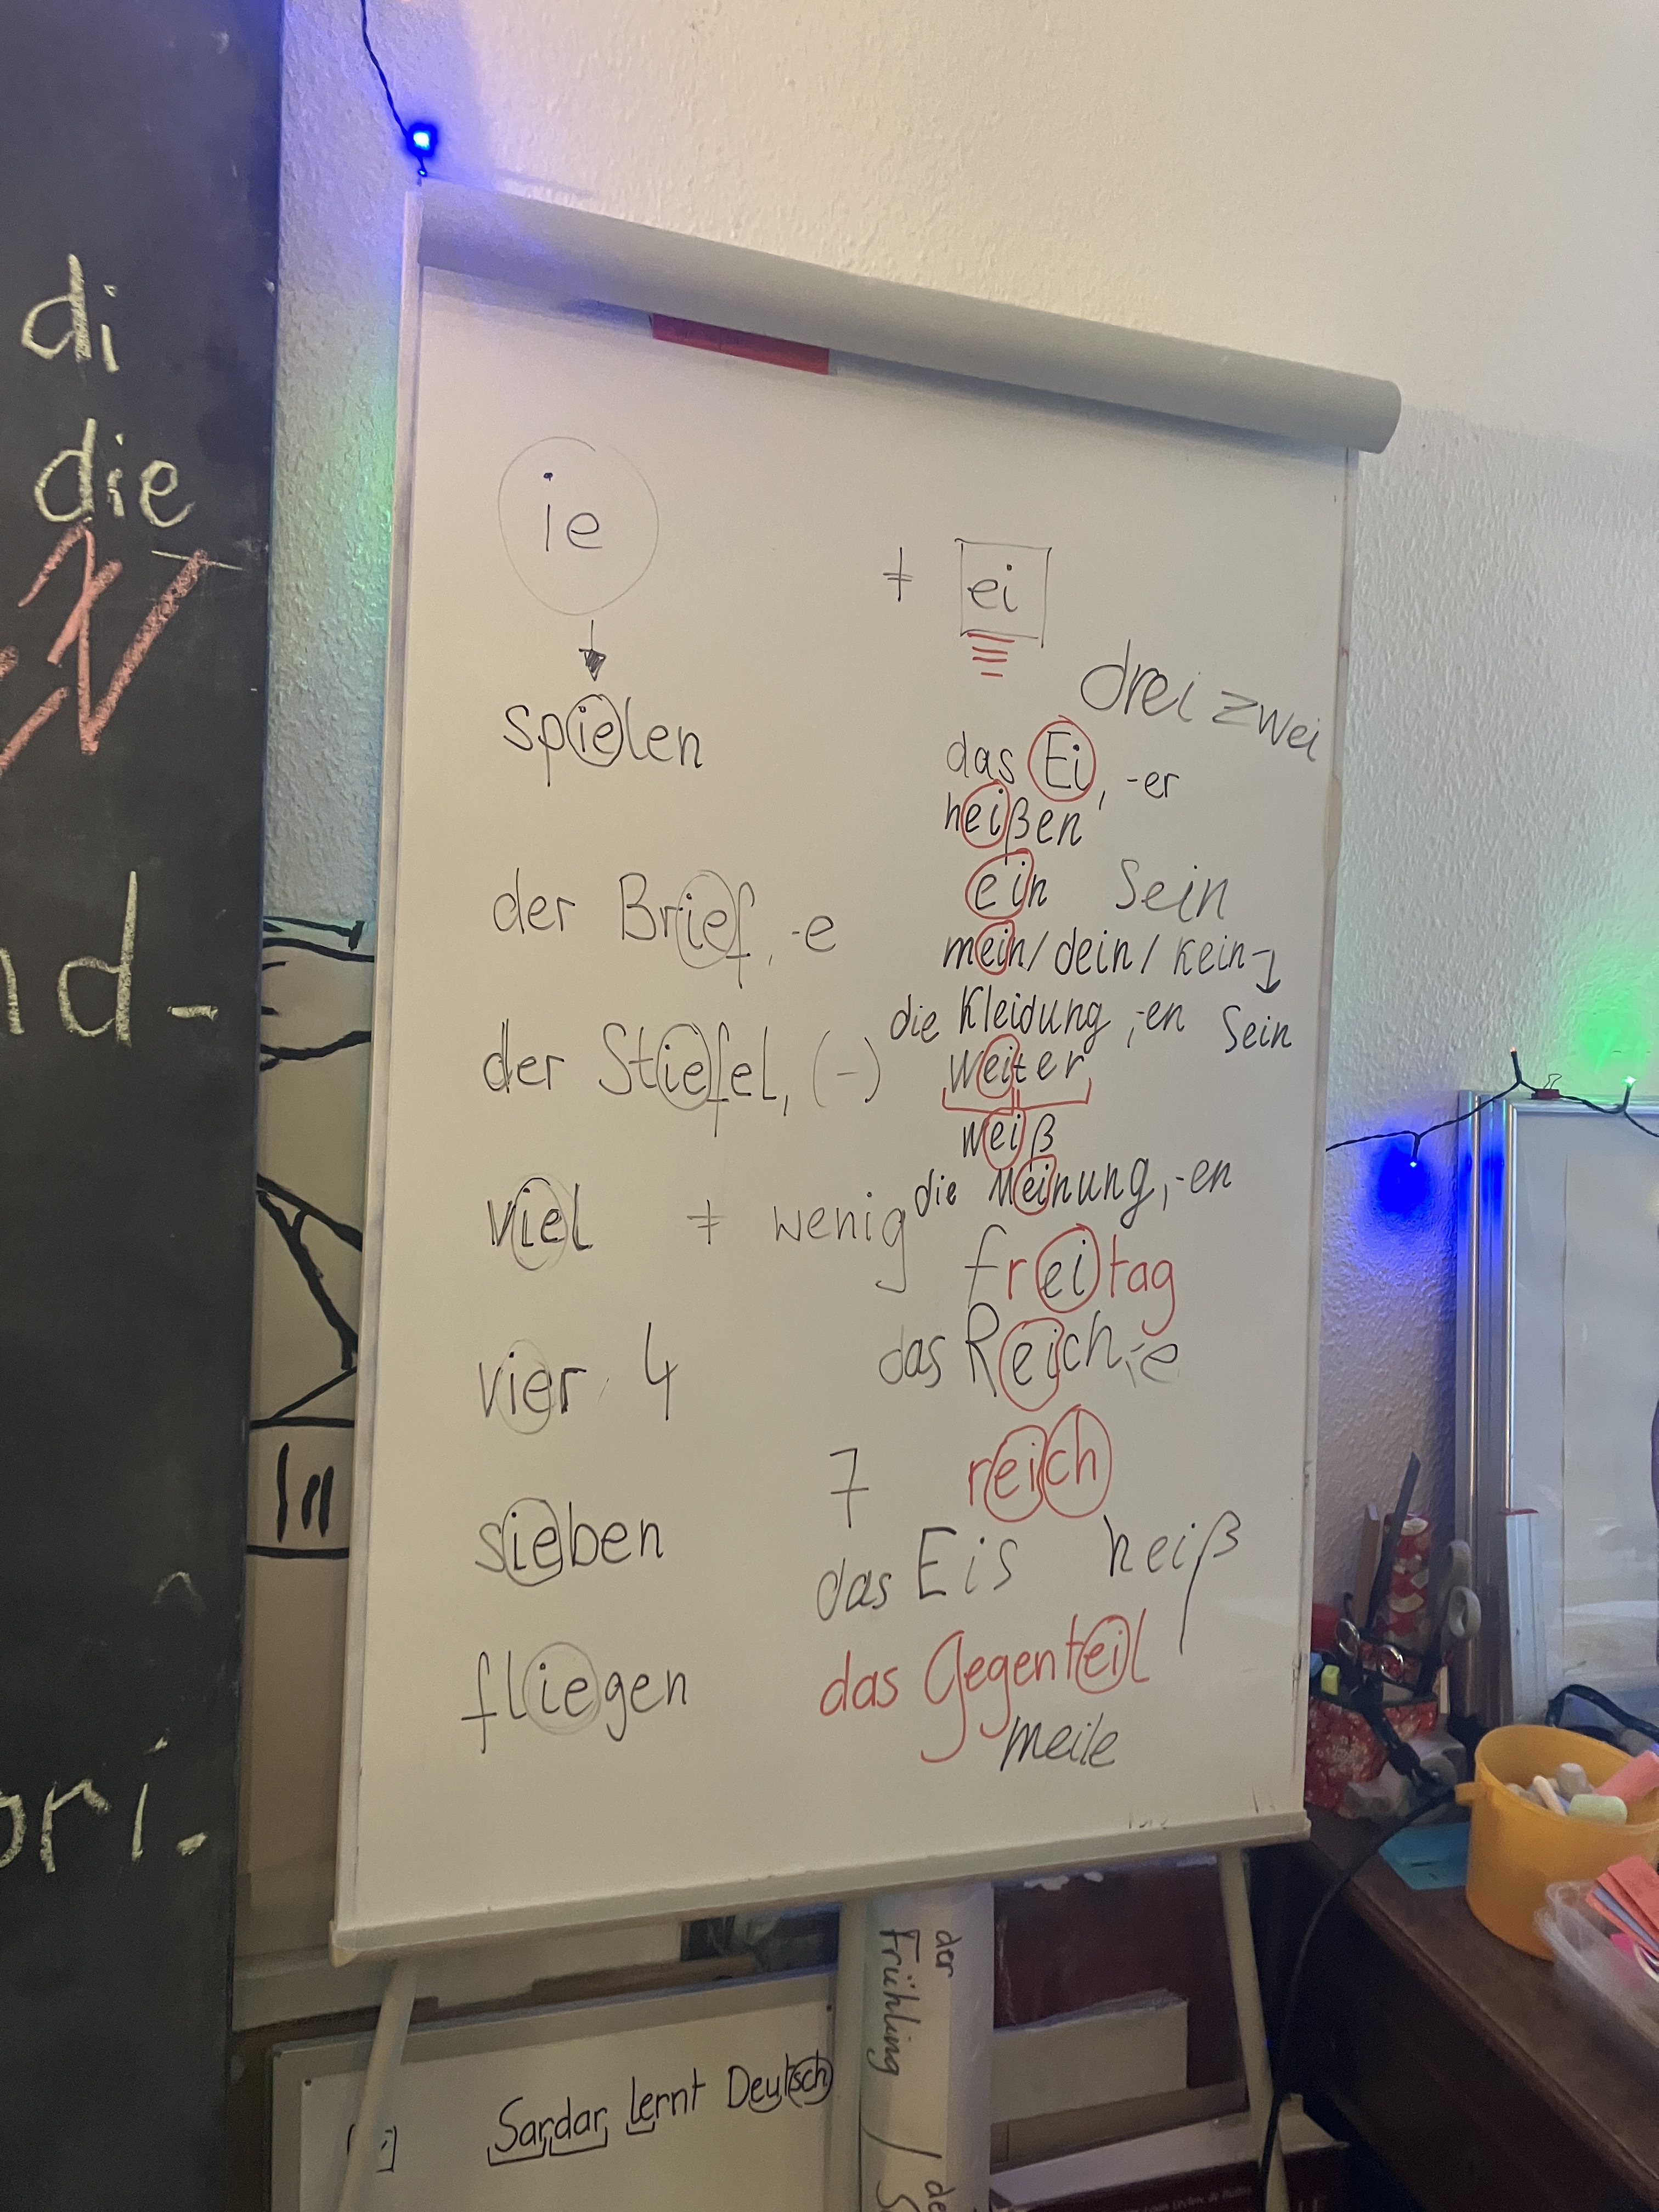 di
die
nd-
ori.
ie ≠ ei
drei zwei
spielen
das Ei, -er
heißen
ein Sein
der Brief, -e
mein/dein/kein
Sein
die Kleidung, -en
der Stiefel, (-)
weiter
weiß
die Meinung, -en
viel ≠ wenig
freitag
das Reich, -e
vier 4
reich
sieben 7
das Eis heiß
das Gegenteil
fliegen
meile
der
Frühling /
Sardar lernt Deutsch